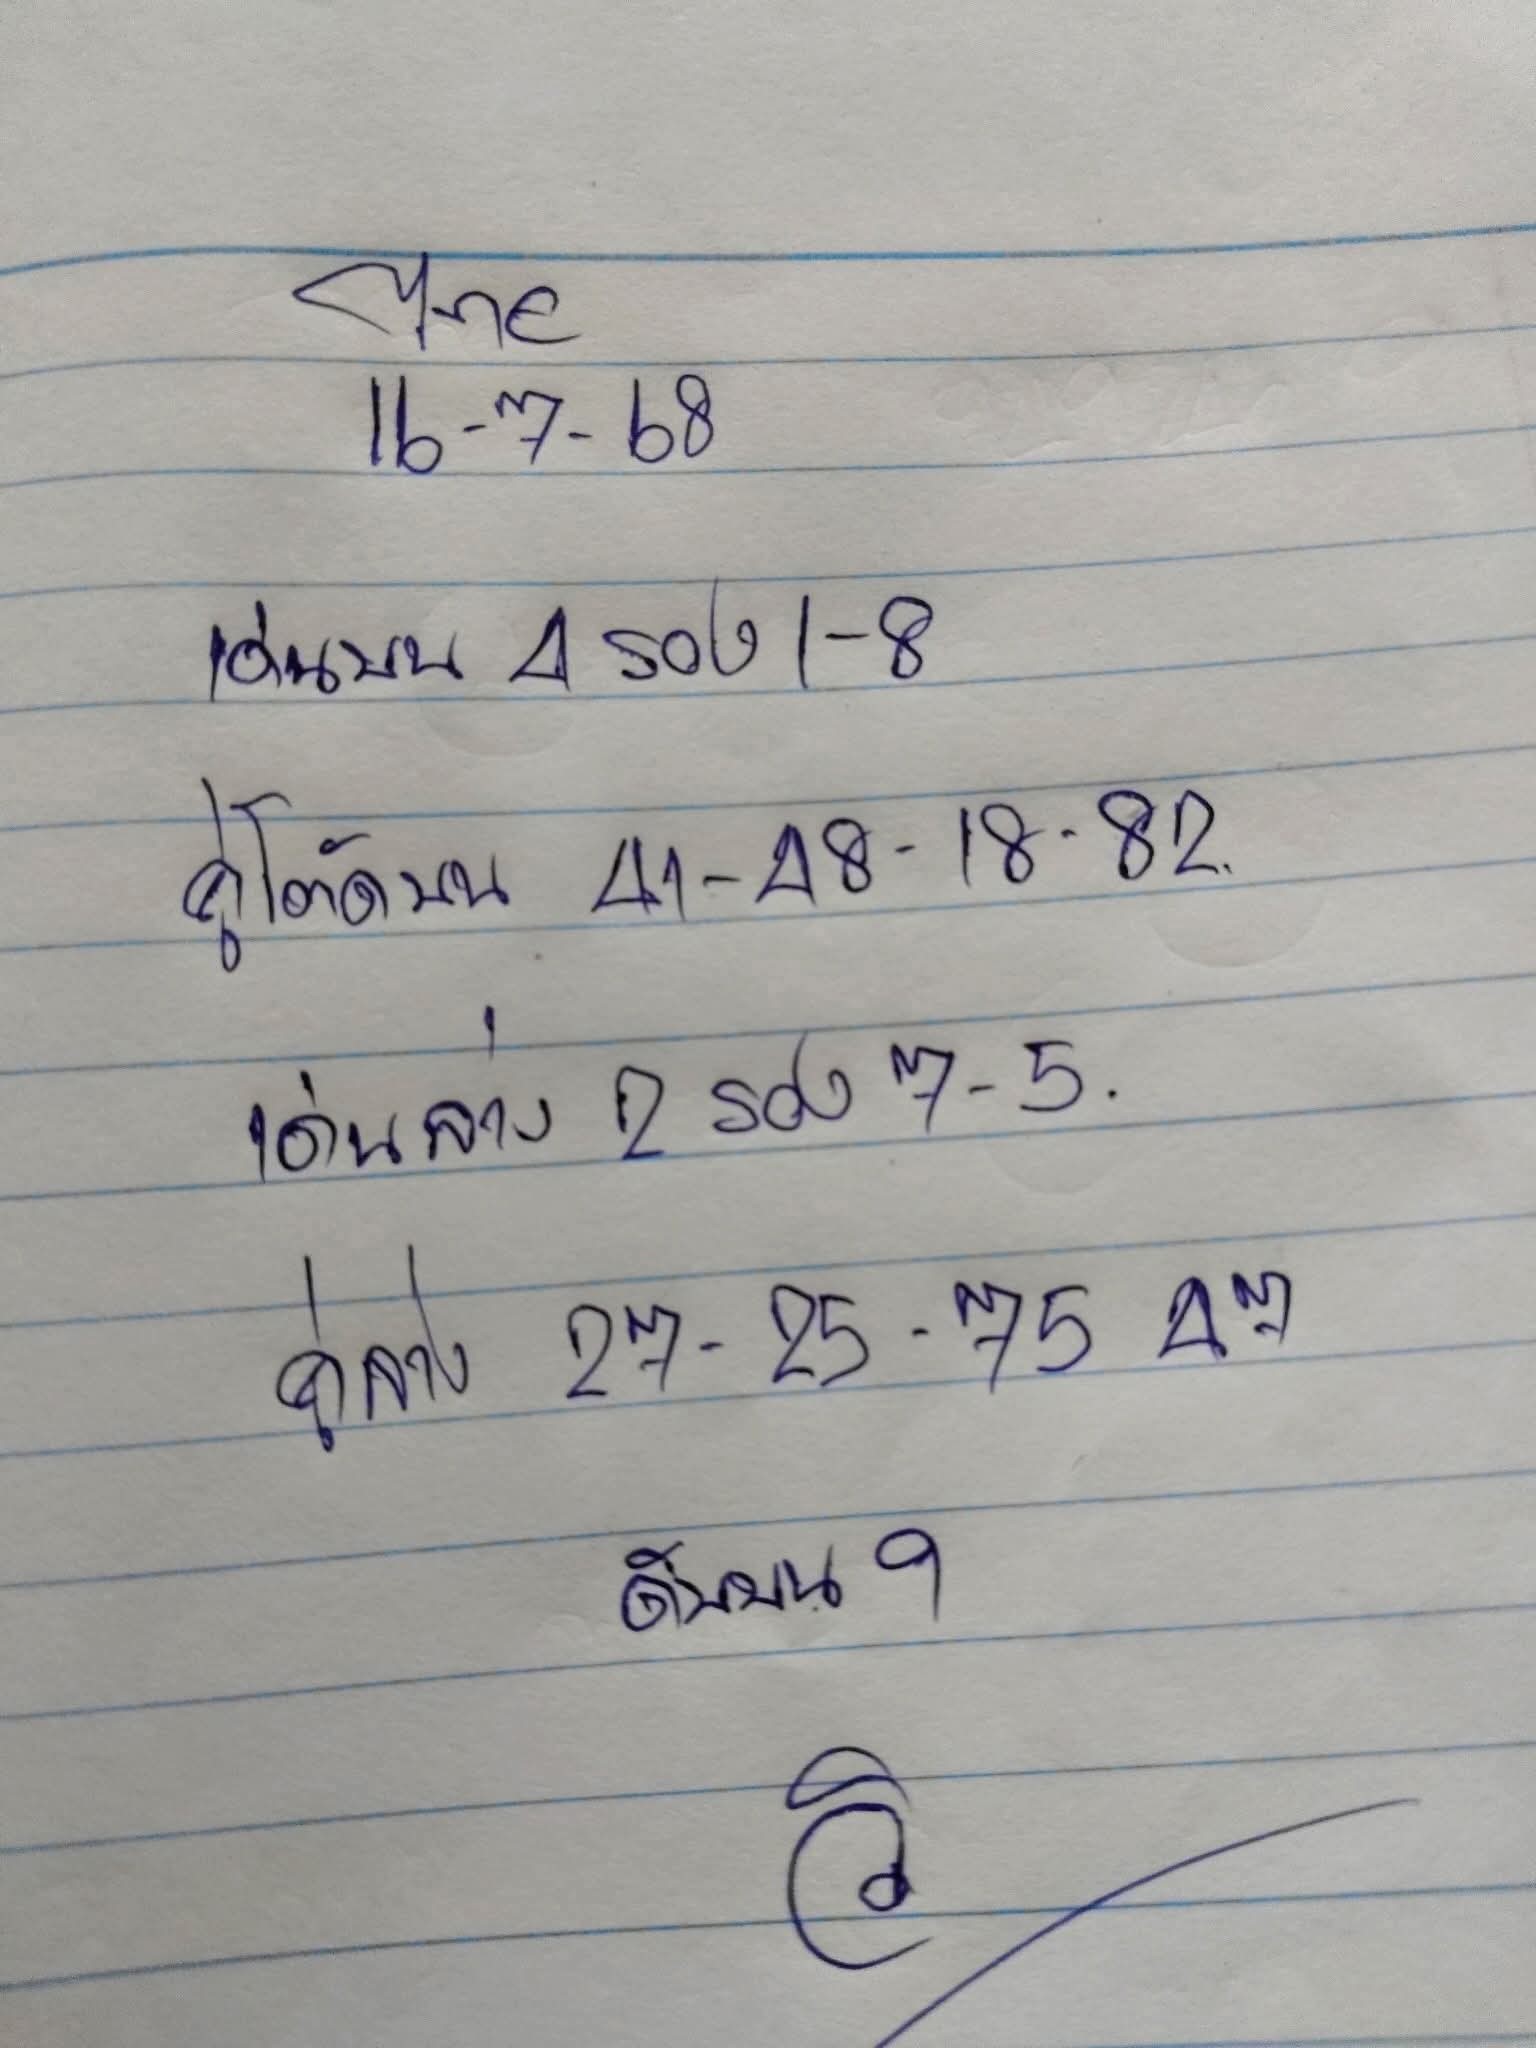 ไทย
16-7-68
เด่นบน 4 รอง 1-8
คู่โต๊ดบน 41-48-18-82.
เด่นล่าง 2 รอง 7-5.
คู่ล่าง 27-25-75 47
ดับบน 9